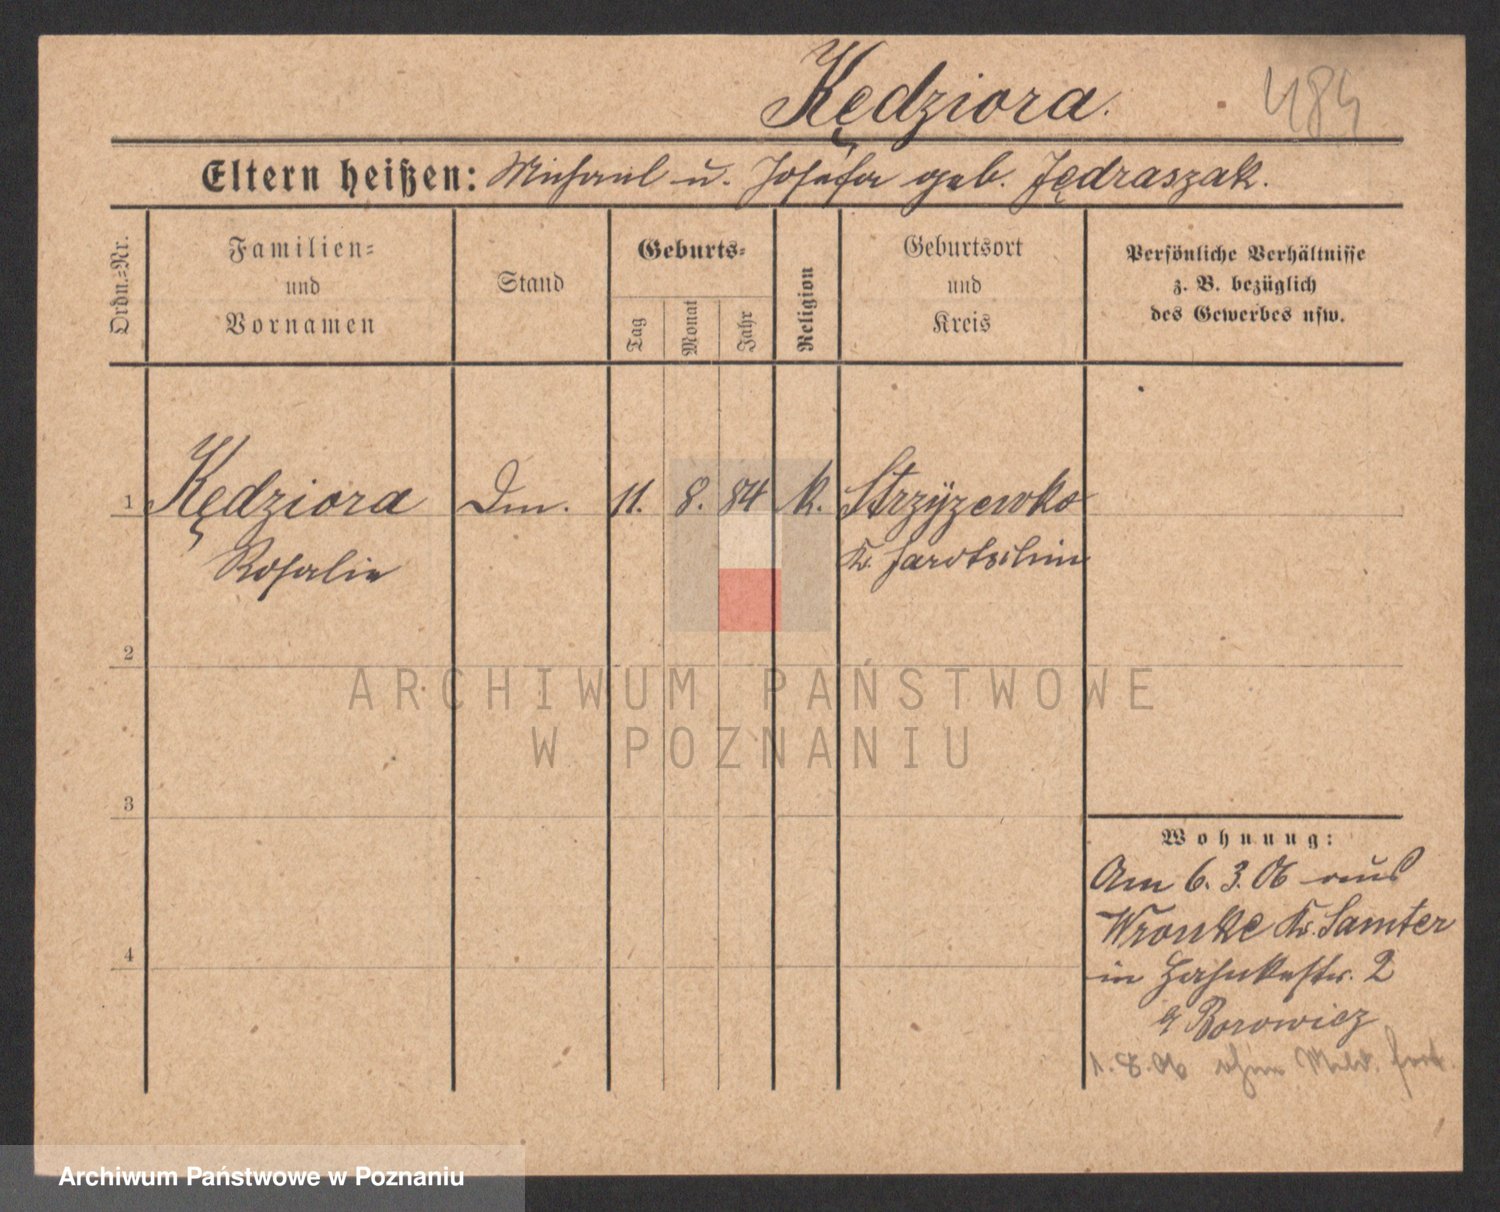 Kędziora.
484
Eltern heißen: Michael u. Josefa geb. Jędraszak.
Ordn.-Nr.
Familien-
und
Vornamen
Stand
Geburts-
Tag
Monat
Jahr
Religion
Geburtsort
und
Kreis
Persönliche Verhältnisse
z. B. bezüglich
des Gewerbes usw.
1 Kędziora Dm. 11. 8. 84 k. Strzÿzewko
Rosalie Kr. Jarotschin
2
ARCHIWUM PAŃSTWOWE
W POZNANIU
3
Wohnung:
Am 6. 3. 06 aus
Wronke Kr. Samter
4
in Hahnkestr. 2
Borowicz
1. 8. 06 ohne Meld. fort.
Archiwum Państwowe w Poznaniu